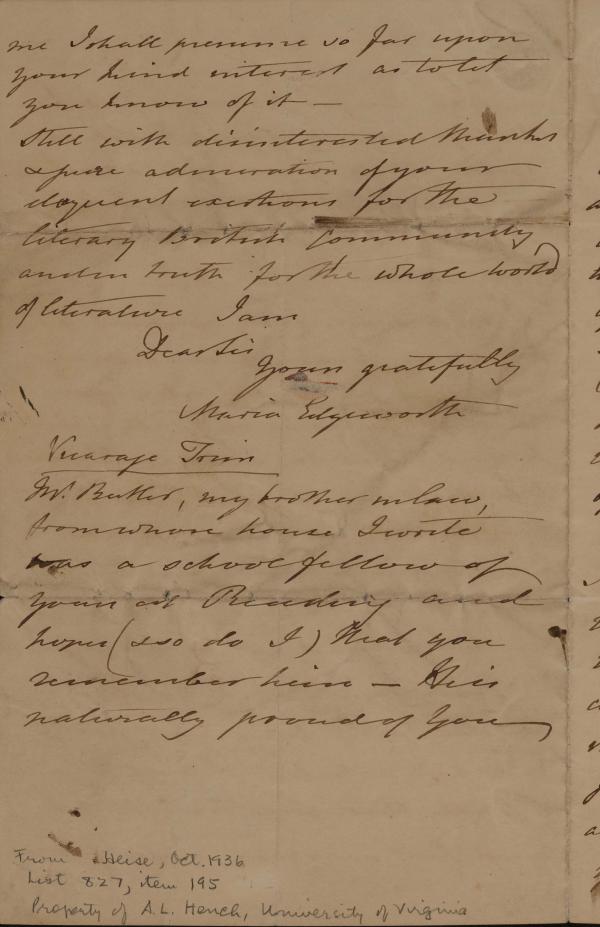 me I shall presume so far upon
your kind interest as to let
you know of it —
Still with disinterested thanks
& pure admiration of your
eloquent exertions for the
literary British Community
and in truth for the whole world
of literature I am
Dear Sir
Yours gratefully
Maria Edgeworth
Vicarage Trim
Mr. Butler, my brother in law,
from whose house I write
was a school fellow of
yours at Reading and
hopes (& so do I) that you
remember him — He is
naturally proud of you
From Heise, Oct. 1936
List 827, item 195
Property of A.L. Hench, University of Virginia